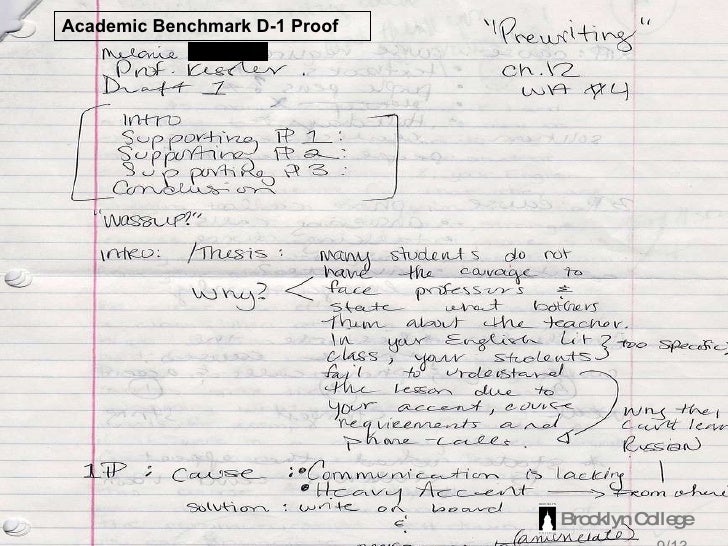 Academic Benchmark D-1 Proof
"Prewriting"
Melanie
Prof. Kessler.
ch.12
Draft 1
WA #4
Intro
Supporting ¶ 1:
Supporting ¶ 2:
Supporting ¶ 3:
Conclusion
"Wassup?"
Intro: /Thesis: many students do not
have the courage to
Why? < face professors &
state what bothers
them about the teacher.
In your English Lit } too specific
class, your students
fail to understand
the lesson due to
your accent, course
requirements and
phone-calls.
why they
can't learn
Russian
1 ¶: Cause: • Communication is lacking
• Heavy Accent → from where
solution: write on board
&
(annunciate)
Brooklyn College